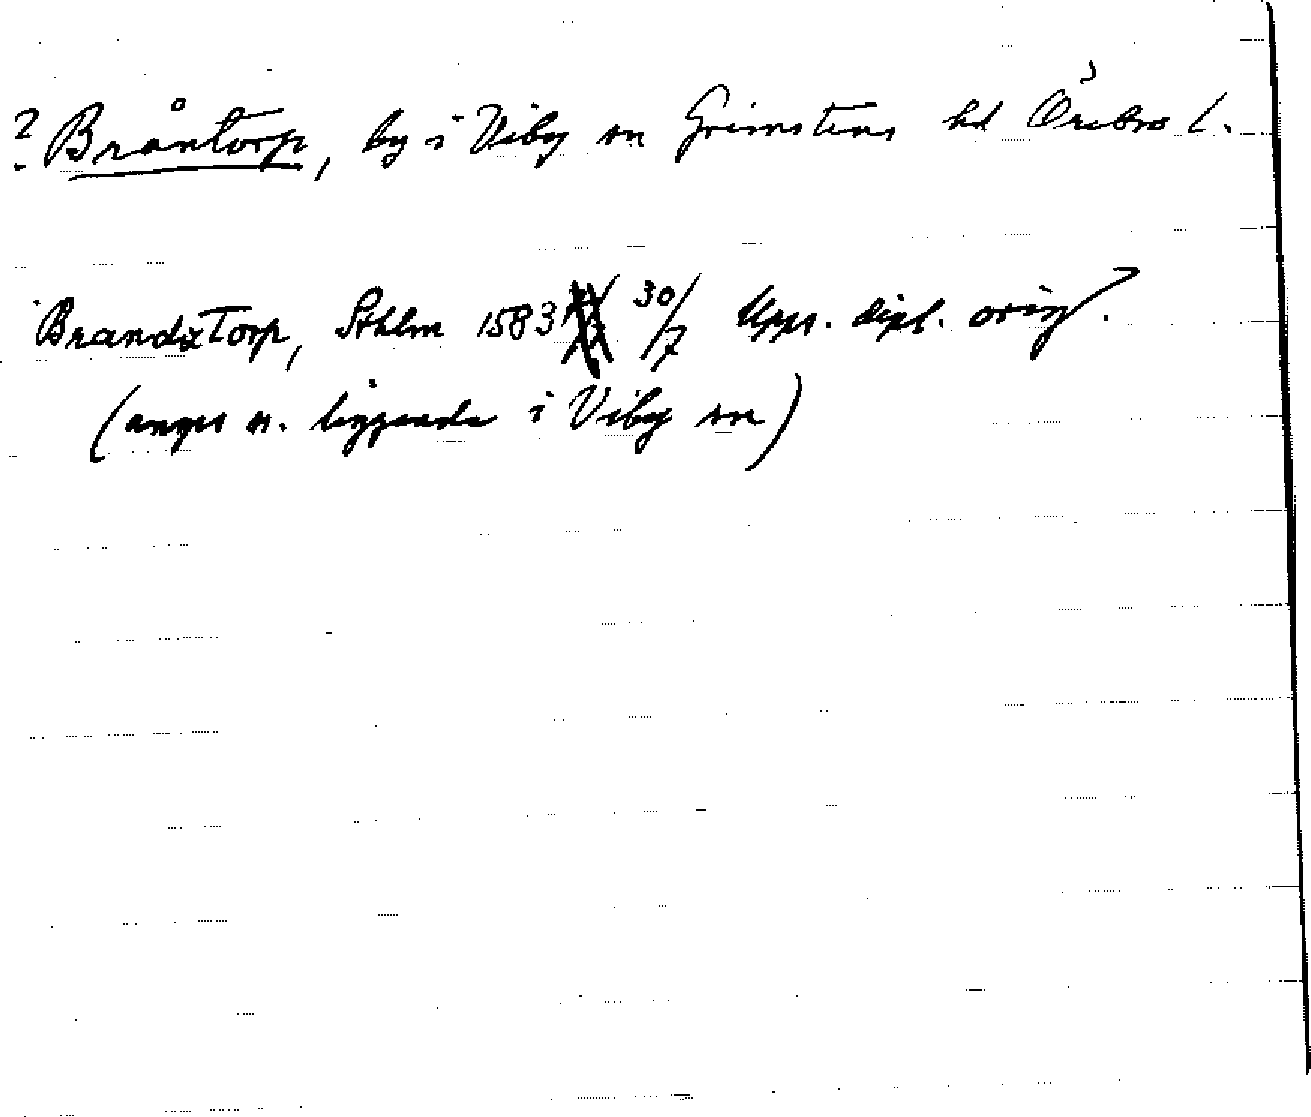 ? Bråntorp, by i Viby sn Grimstens hd Örebro l.
Brandztorp, Sthlm 1583 30/7 Upps. dipl. orig.
(anges s. liggande i Viby sn)